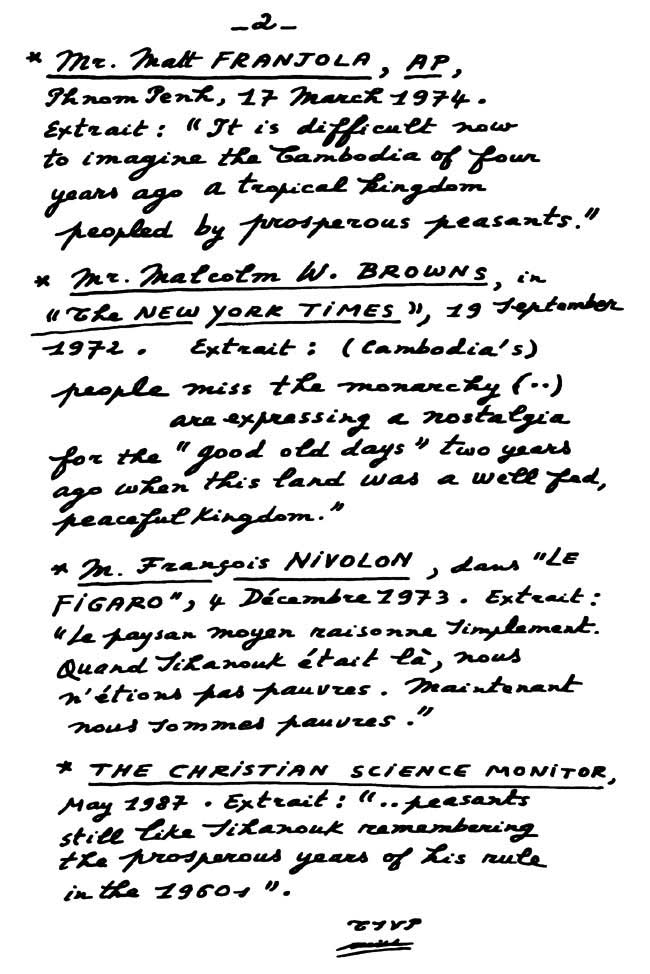 -2-
* Mr. Matt FRANJOLA, AP,
Phnom Penh, 17 March 1974.
Extrait : "It is difficult now
to imagine the Cambodia of four
years ago a tropical kingdom
peopled by prosperous peasants."
* Mr. Malcolm W. BROWNS, in
"The NEW YORK TIMES", 19 September
1972. Extrait : (Cambodia's)
people miss the monarchy (..)
are expressing a nostalgia
for the "good old days" two years
ago when this land was a well fed,
peaceful kingdom."
* M. François NIVOLON, dans "LE
FIGARO", 4 Décembre 1973. Extrait :
"Le paysan moyen raisonne simplement.
Quand Sihanouk était là, nous
n'étions pas pauvres. Maintenant
nous sommes pauvres."
* THE CHRISTIAN SCIENCE MONITOR,
May 1987. Extrait : "..peasants
still like Sihanouk remembering
the prosperous years of his rule
in the 1960s".
TSVP